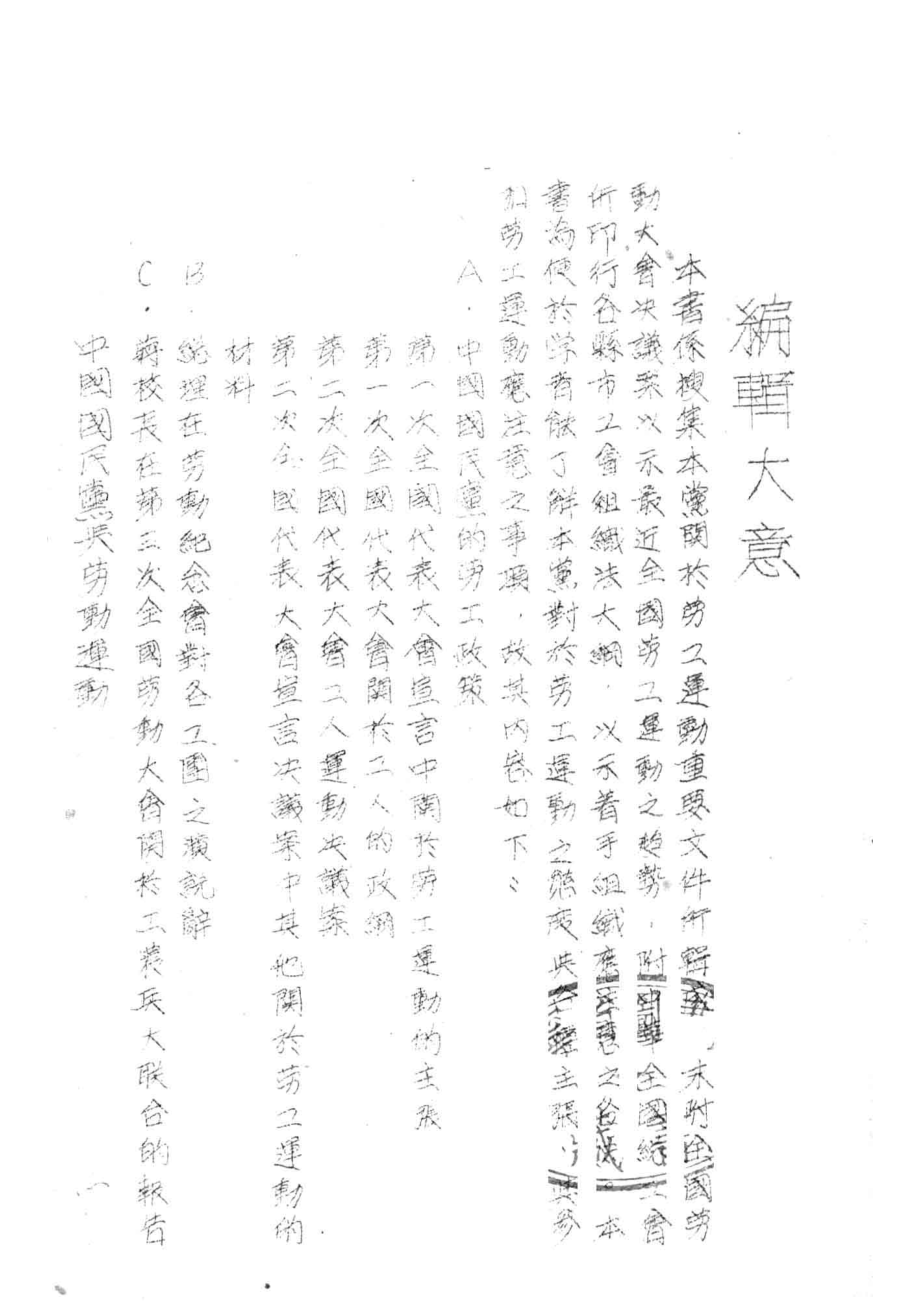 編輯大意
本書係搜集本黨關於劳工運動重要文件所輯成末附全國劳
動大會决議案以示最近全國劳工運動之趋勢．附中華全國総工會
所印行各縣市工會組織法大綱．以示着手組織應注意之方法。本
書為便於学者能了觧本黨對於劳工運動之態度與主張與參
加劳工運動應注意之事項．故其内容如下：
A．中國國民黨的劳工政策
第一次全國代表大會宣言中関於劳工運動的主張
第一次全國代表大會関於工人的政綱
第二次全國代表大會工人運動决議案
第二次全國代表大會宣言决議案中其他関於劳工運動的
材料
B．総理在劳動紀念會對各工團之演説辭
C．蒋校長在第三次全國劳動大會関於工農兵大联合的報告
中國國民黨與劳動運動
一